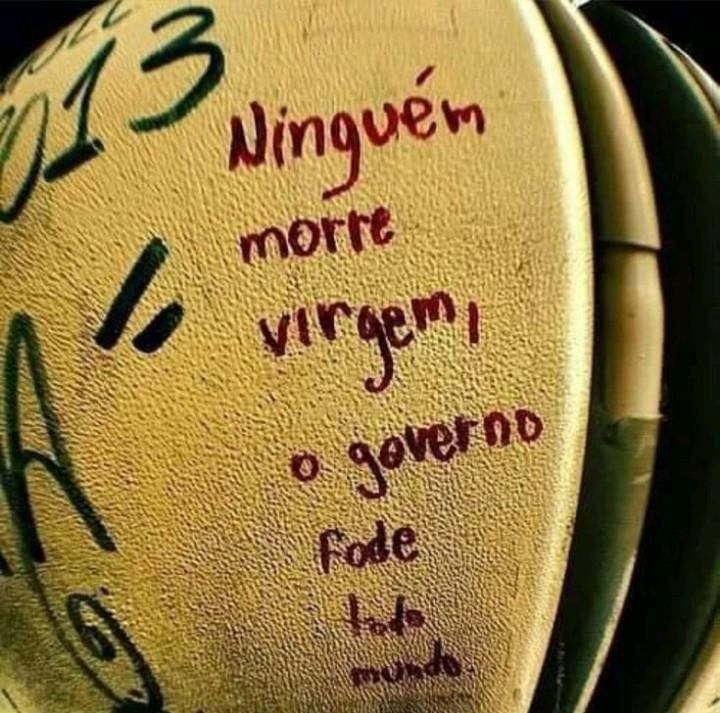 2013
Ninguém
morre
virgem,
o governo
fode
todo
mundo.
A